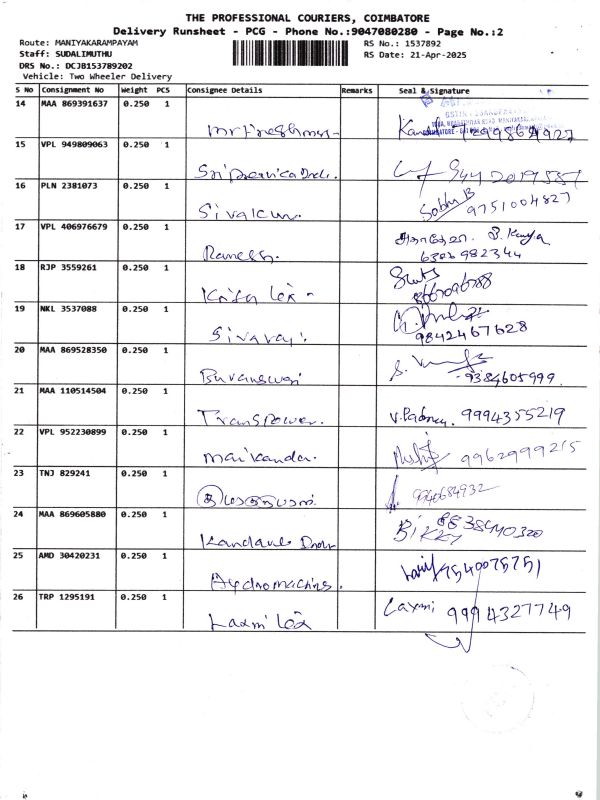 THE PROFESSIONAL COURIERS, COIMBATORE
Delivery Runsheet - PCG - Phone No.:9047080280 - Page No.:2
Route: MANIYAKARAMPAYAM
Staff: SUDALIMUTHU
DRS No.: DCJB153789202
Vehicle: Two Wheeler Delivery
RS No.: 1537892
RS Date: 21-Apr-2025
S No Consignment No Weight PCS Consignee Details Remarks Seal & Signature
14 MAA 869391637 0.250 1
15 VPL 949809063 0.250 1
16 PLN 2381073 0.250 1
Sivakum. Sobhi B 9751004827
17 VPL 406976679 0.250 1
Ramesh. 6306982344
18 RJP 3559261 0.250 1
19 NKL 3537088 0.250 1
Sivaraj. 9842467628
20 MAA 869528350 0.250 1
9384605999.
21 MAA 110514504 0.250 1
Transpower. 9994355219
22 VPL 952230899 0.250 1
Manikanda. 9962999215
23 TNJ 829241 0.250 1
9940684932
24 MAA 869605880 0.250 1
25 AMD 30420231 0.250 1
Hydromachins. 9540075751
26 TRP 1295191 0.250 1
Laxmi Tex Laxmi 9994327749